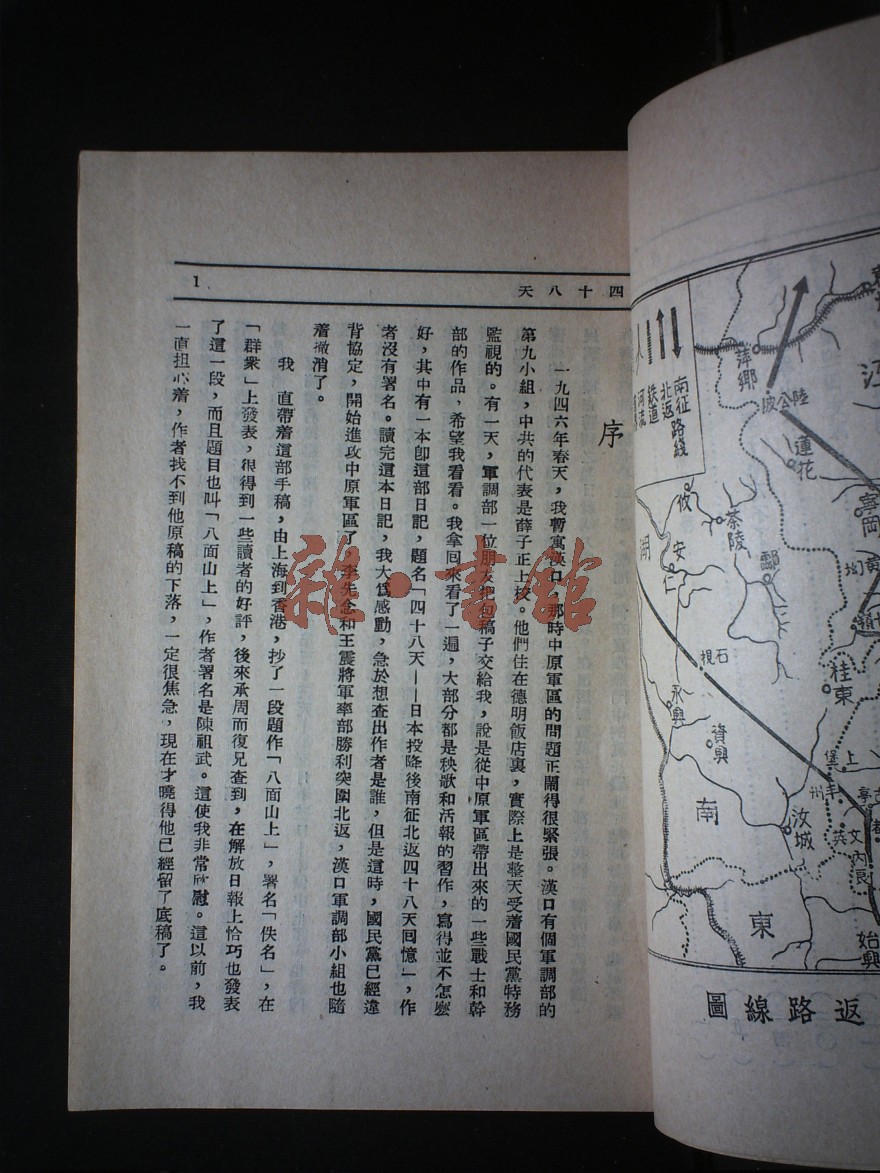 四十八天
1
序
一九四六年春天，我暫寓漢口，那時中原軍區的問題正鬧得很緊張。漢口有個軍調部的
第九小組，中共的代表是薛子正上校。他們住在德明飯店裏，實際上是整天受着國民黨特務
監視的。有一天，軍調部一位朋友把包稿子交給我，說是從中原軍區帶出來的一些戰士和幹
部的作品，希望我看看。我拿回來看了一遍，大部分都是秧歌和活報的習作，寫得並不怎麼
好，其中有一本卽這部日記，題名「四十八天——日本投降後南征北返四十八天回憶」，作
者沒有署名。讀完這本日記，我大爲感動，急於想查出作者是誰，但是這時，國民黨已經違
背協定，開始進攻中原軍區了，李先念和王震將軍率部勝利突圍北返，漢口軍調部小組也隨
着撤消了。
我 直帶着這部手稿，由上海到香港，抄了一段題作「八面山上」，署名「佚名」，在
「群衆」上發表，很得到一些讀者的好評，後來承周而復兄查到，在解放日報上恰巧也發表
了這一段，而且題目也叫「八面山上」，作者署名是陳祖武。這使我非常欣慰。這以前，我
一直担心着，作者找不到他原稿的下落，一定很焦急，現在才曉得他已經留了底稿了。
雜·書館
南征路綫
北返
鉄道
河流
江
萍鄉
陸公坡
蓮花
攸
茶陵
寧岡
安仁
酃
湖
石視
桂東
永興
資興
上堡
南
汝城
文英
內良
東
始興
返路線圖